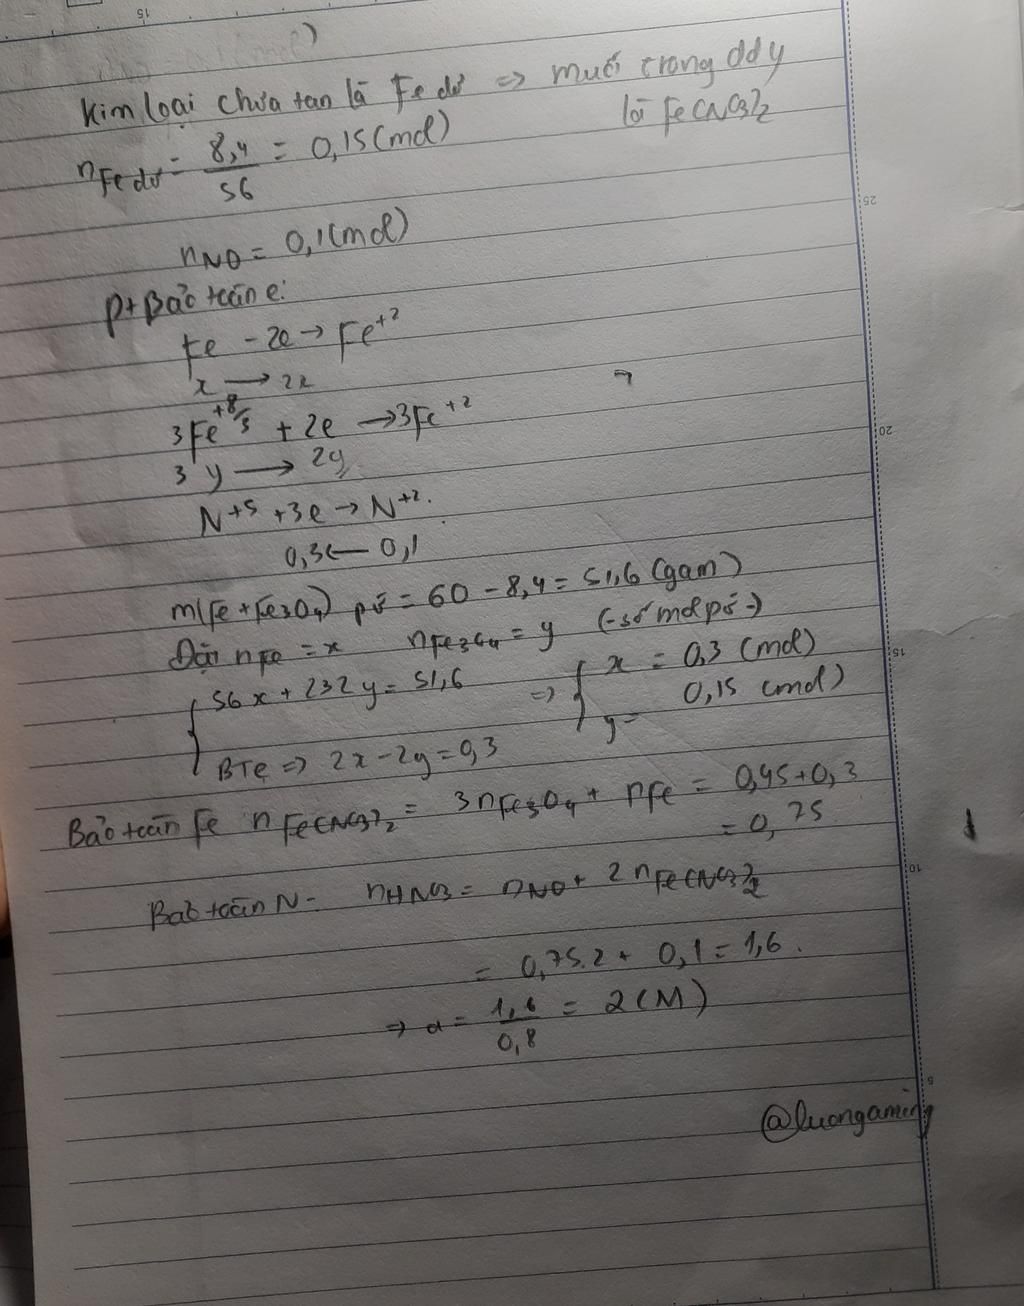 Kim loại chưa tan là Fe dư => muối trong dd y
là Fe(NO3)2
nFe dư = 8,4/56 = 0,15(mol)
nNO = 0,1(mol)
P+ Bảo toàn e:
Fe - 2e → Fe+2
x → 2x
3Fe+8/3 + 2e → 3Fe+2
3y → 2y
N+5 + 3e → N+2.
0,3 ← 0,1
m(Fe + Fe3O4) pứ = 60 - 8,4 = 51,6 (gam)
Đặt nFe = x nFe3O4 = y (-số mol pứ-)
56x + 232y = 51,6 => x = 0,3 (mol)
BTe => 2x - 2y = 0,3 y = 0,15 (mol)
Bảo toàn Fe nFe(NO3)2 = 3nFe3O4 + nFe = 0,45+0,3
= 0,75
Bảo toàn N - nHNO3 = nNO + 2nFe(NO3)2
= 0,75.2 + 0,1 = 1,6.
=> a = 1,6/0,8 = 2(M)
@luongaming
15
25
20
15
10
5